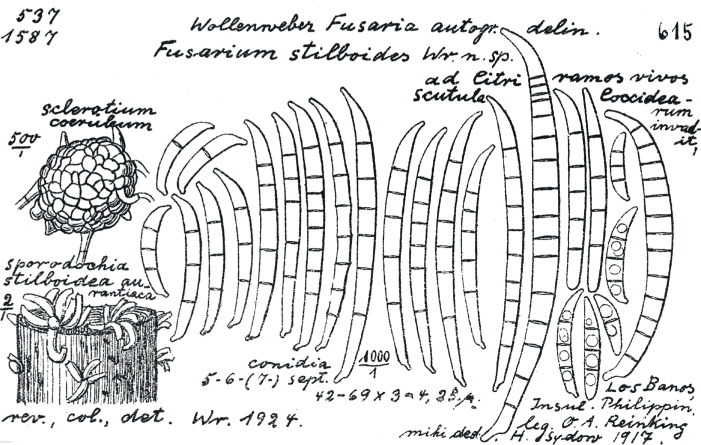 537
1587
Wollenweber Fusaria autogr. delin.
615
Fusarium stilboides Wr. n. sp.
ad Citri ramos vivos
scutula Coccidea-
rum
invad-
it,
sclerotium
coeruleum
500/1
sporodochia
stilboidea au-
rantiaca
2/1
conidia 1000/1
5-6-(7-) sept.
42-69 x 3-4,25 µ.
Los Banos,
Insul. Philippin.
leg. O. A. Reinking
rev., col., det. Wr. 1924.
mihi ded. H. Sydow 1917.